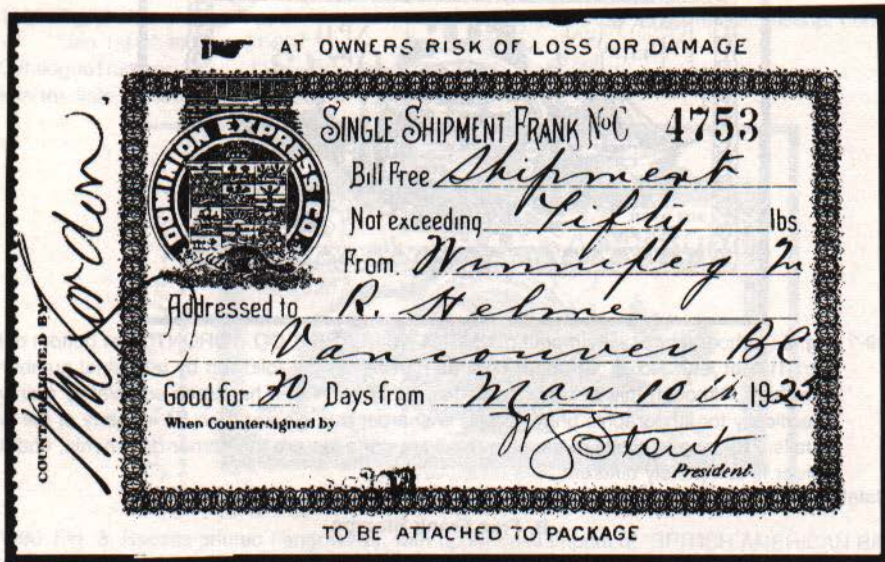 AT OWNERS RISK OF LOSS OR DAMAGE
DOMINION EXPRESS CO.
SINGLE SHIPMENT FRANK No C 4753
Bill Free Shipment
Not exceeding Fifty lbs.
From Winnipeg
Addressed to R. Helme
Vancouver BC
Good for 30 Days from Mar 10th 1925
When Countersigned by
President.
COUNTERSIGNED BY
TO BE ATTACHED TO PACKAGE